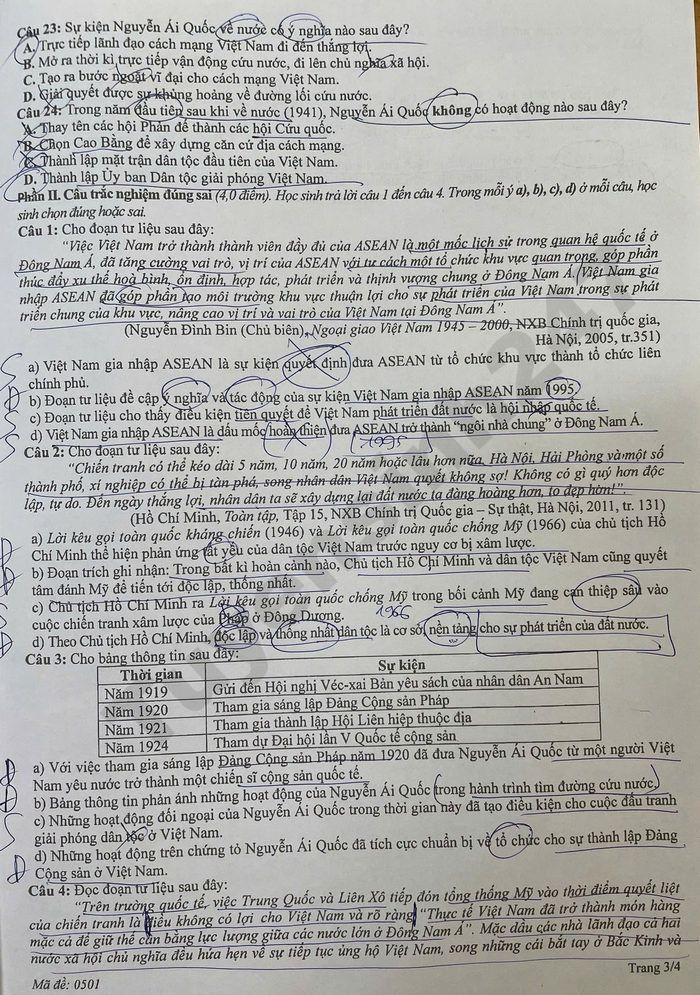 Câu 23: Sự kiện Nguyễn Ái Quốc về nước có ý nghĩa nào sau đây?
A. Trực tiếp lãnh đạo cách mạng Việt Nam đi đến thắng lợi.
B. Mở ra thời kì trực tiếp vận động cứu nước, đi lên chủ nghĩa xã hội.
C. Tạo ra bước ngoặt vĩ đại cho cách mạng Việt Nam.
D. Giải quyết được sự khủng hoảng về đường lối cứu nước.
Câu 24: Trong năm đầu tiên sau khi về nước (1941), Nguyễn Ái Quốc không có hoạt động nào sau đây?
A. Thay tên các hội Phản đế thành các hội Cứu quốc.
B. Chọn Cao Bằng để xây dựng căn cứ địa cách mạng.
C. Thành lập mặt trận dân tộc đầu tiên của Việt Nam.
D. Thành lập Ủy ban Dân tộc giải phóng Việt Nam.
Phần II. Câu trắc nghiệm đúng sai (4,0 điểm). Học sinh trả lời câu 1 đến câu 4. Trong mỗi ý a), b), c), d) ở mỗi câu, học
sinh chọn đúng hoặc sai.
Câu 1: Cho đoạn tư liệu sau đây:
"Việc Việt Nam trở thành thành viên đầy đủ của ASEAN là một mốc lịch sử trong quan hệ quốc tế ở
Đông Nam Á, đã tăng cường vai trò, vị trí của ASEAN với tư cách một tổ chức khu vực quan trọng, góp phần
thúc đẩy xu thế hoà bình, ổn định, hợp tác, phát triển và thịnh vượng chung ở Đông Nam Á. Việt Nam gia
nhập ASEAN đã góp phần tạo môi trường khu vực thuận lợi cho sự phát triển của Việt Nam trong sự phát
triển chung của khu vực, nâng cao vị trí và vai trò của Việt Nam tại Đông Nam Á".
(Nguyễn Đình Bin (Chủ biên), Ngoại giao Việt Nam 1945 – 2000, NXB Chính trị quốc gia,
Hà Nội, 2005, tr.351)
S a) Việt Nam gia nhập ASEAN là sự kiện quyết định đưa ASEAN từ tổ chức khu vực thành tổ chức liên
chính phủ.
Đ b) Đoạn tư liệu đề cập ý nghĩa và tác động của sự kiện Việt Nam gia nhập ASEAN năm 1995.
S c) Đoạn tư liệu cho thấy điều kiện tiên quyết để Việt Nam phát triển đất nước là hội nhập quốc tế.
S d) Việt Nam gia nhập ASEAN là dấu mốc hoàn thiện đưa ASEAN trở thành "ngôi nhà chung" ở Đông Nam Á.
1995
Câu 2: Cho đoạn tư liệu sau đây:
"Chiến tranh có thể kéo dài 5 năm, 10 năm, 20 năm hoặc lâu hơn nữa. Hà Nội, Hải Phòng và một số
thành phố, xí nghiệp có thể bị tàn phá, song nhân dân Việt Nam quyết không sợ! Không có gì quý hơn độc
lập, tự do. Đến ngày thắng lợi, nhân dân ta sẽ xây dựng lại đất nước ta đàng hoàng hơn, to đẹp hơn!".
(Hồ Chí Minh, Toàn tập, Tập 15, NXB Chính trị Quốc gia – Sự thật, Hà Nội, 2011, tr. 131)
a) Lời kêu gọi toàn quốc kháng chiến (1946) và Lời kêu gọi toàn quốc chống Mỹ (1966) của chủ tịch Hồ
Chí Minh thể hiện phản ứng tất yếu của dân tộc Việt Nam trước nguy cơ bị xâm lược.
b) Đoạn trích ghi nhận: Trong bất kì hoàn cảnh nào, Chủ tịch Hồ Chí Minh và dân tộc Việt Nam cũng quyết
tâm đánh Mỹ để tiến tới độc lập, thống nhất.
c) Chủ tịch Hồ Chí Minh ra Lời kêu gọi toàn quốc chống Mỹ trong bối cảnh Mỹ đang can thiệp sâu vào
cuộc chiến tranh xâm lược của Pháp ở Đông Dương.
1966
d) Theo Chủ tịch Hồ Chí Minh, độc lập và thống nhất dân tộc là cơ sở, nền tảng cho sự phát triển của đất nước.
Câu 3: Cho bảng thông tin sau đây:
Thời gian Sự kiện
Năm 1919 Gửi đến Hội nghị Véc-xai Bản yêu sách của nhân dân An Nam
Năm 1920 Tham gia sáng lập Đảng Cộng sản Pháp
Năm 1921 Tham gia thành lập Hội Liên hiệp thuộc địa
Năm 1924 Tham dự Đại hội lần V Quốc tế cộng sản
a) Với việc tham gia sáng lập Đảng Cộng sản Pháp năm 1920 đã đưa Nguyễn Ái Quốc từ một người Việt
Nam yêu nước trở thành một chiến sĩ cộng sản quốc tế.
b) Bảng thông tin phản ánh những hoạt động của Nguyễn Ái Quốc trong hành trình tìm đường cứu nước.
c) Những hoạt động đối ngoại của Nguyễn Ái Quốc trong thời gian này đã tạo điều kiện cho cuộc đấu tranh
giải phóng dân tộc ở Việt Nam.
d) Những hoạt động trên chứng tỏ Nguyễn Ái Quốc đã tích cực chuẩn bị về tổ chức cho sự thành lập Đảng
Cộng sản ở Việt Nam.
Câu 4: Đọc đoạn tư liệu sau đây:
"Trên trường quốc tế, việc Trung Quốc và Liên Xô tiếp đón tổng thống Mỹ vào thời điểm quyết liệt
của chiến tranh là điều không có lợi cho Việt Nam và rõ ràng "Thực tế Việt Nam đã trở thành món hàng
mặc cả để giữ thế cân bằng lực lượng giữa các nước lớn ở Đông Nam Á". Mặc dầu các nhà lãnh đạo cả hai
nước xã hội chủ nghĩa đều hứa hẹn về sự tiếp tục ủng hộ Việt Nam, song những cái bắt tay ở Bắc Kinh và
Trang 3/4
Mã đề: 0501